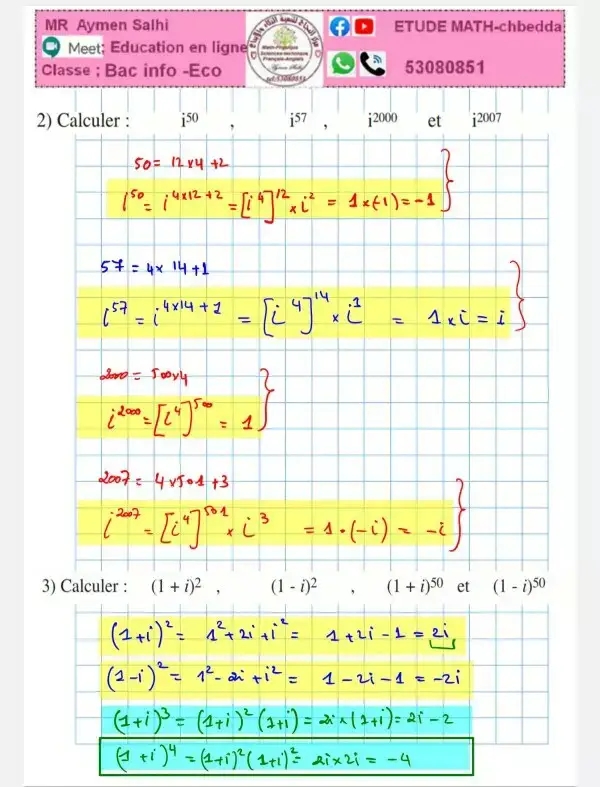 MR Aymen Salhi
Meet; Education en ligne
Classe : Bac info -Eco
ETUDE MATH-chbedda
53080851
2) Calculer : i⁵⁰ , i⁵⁷ , i²⁰⁰⁰ et i²⁰⁰⁷
50 = 12 x 4 + 2
i⁵⁰ = i^(4x12+2) = [i⁴]¹² x i² = 1 x (-1) = -1
57 = 4 x 14 + 1
i⁵⁷ = i^(4x14+1) = [i⁴]¹⁴ x i¹ = 1 x i = i
2000 = 500x4
i²⁰⁰⁰ = [i⁴]⁵⁰⁰ = 1
2007 = 4 x 501 + 3
i²⁰⁰⁷ = [i⁴]⁵⁰¹ x i³ = 1 · (-i) = -i
3) Calculer : (1 + i)² , (1 - i)² , (1 + i)⁵⁰ et (1 - i)⁵⁰
(1+i)² = 1² + 2i + i² = 1 + 2i - 1 = 2i
(1-i)² = 1² - 2i + i² = 1 - 2i - 1 = -2i
(1+i)³ = (1+i)² (1+i) = 2i x (1+i) = 2i - 2
(1+i)⁴ = (1+i)² (1+i)² = 2i x 2i = -4